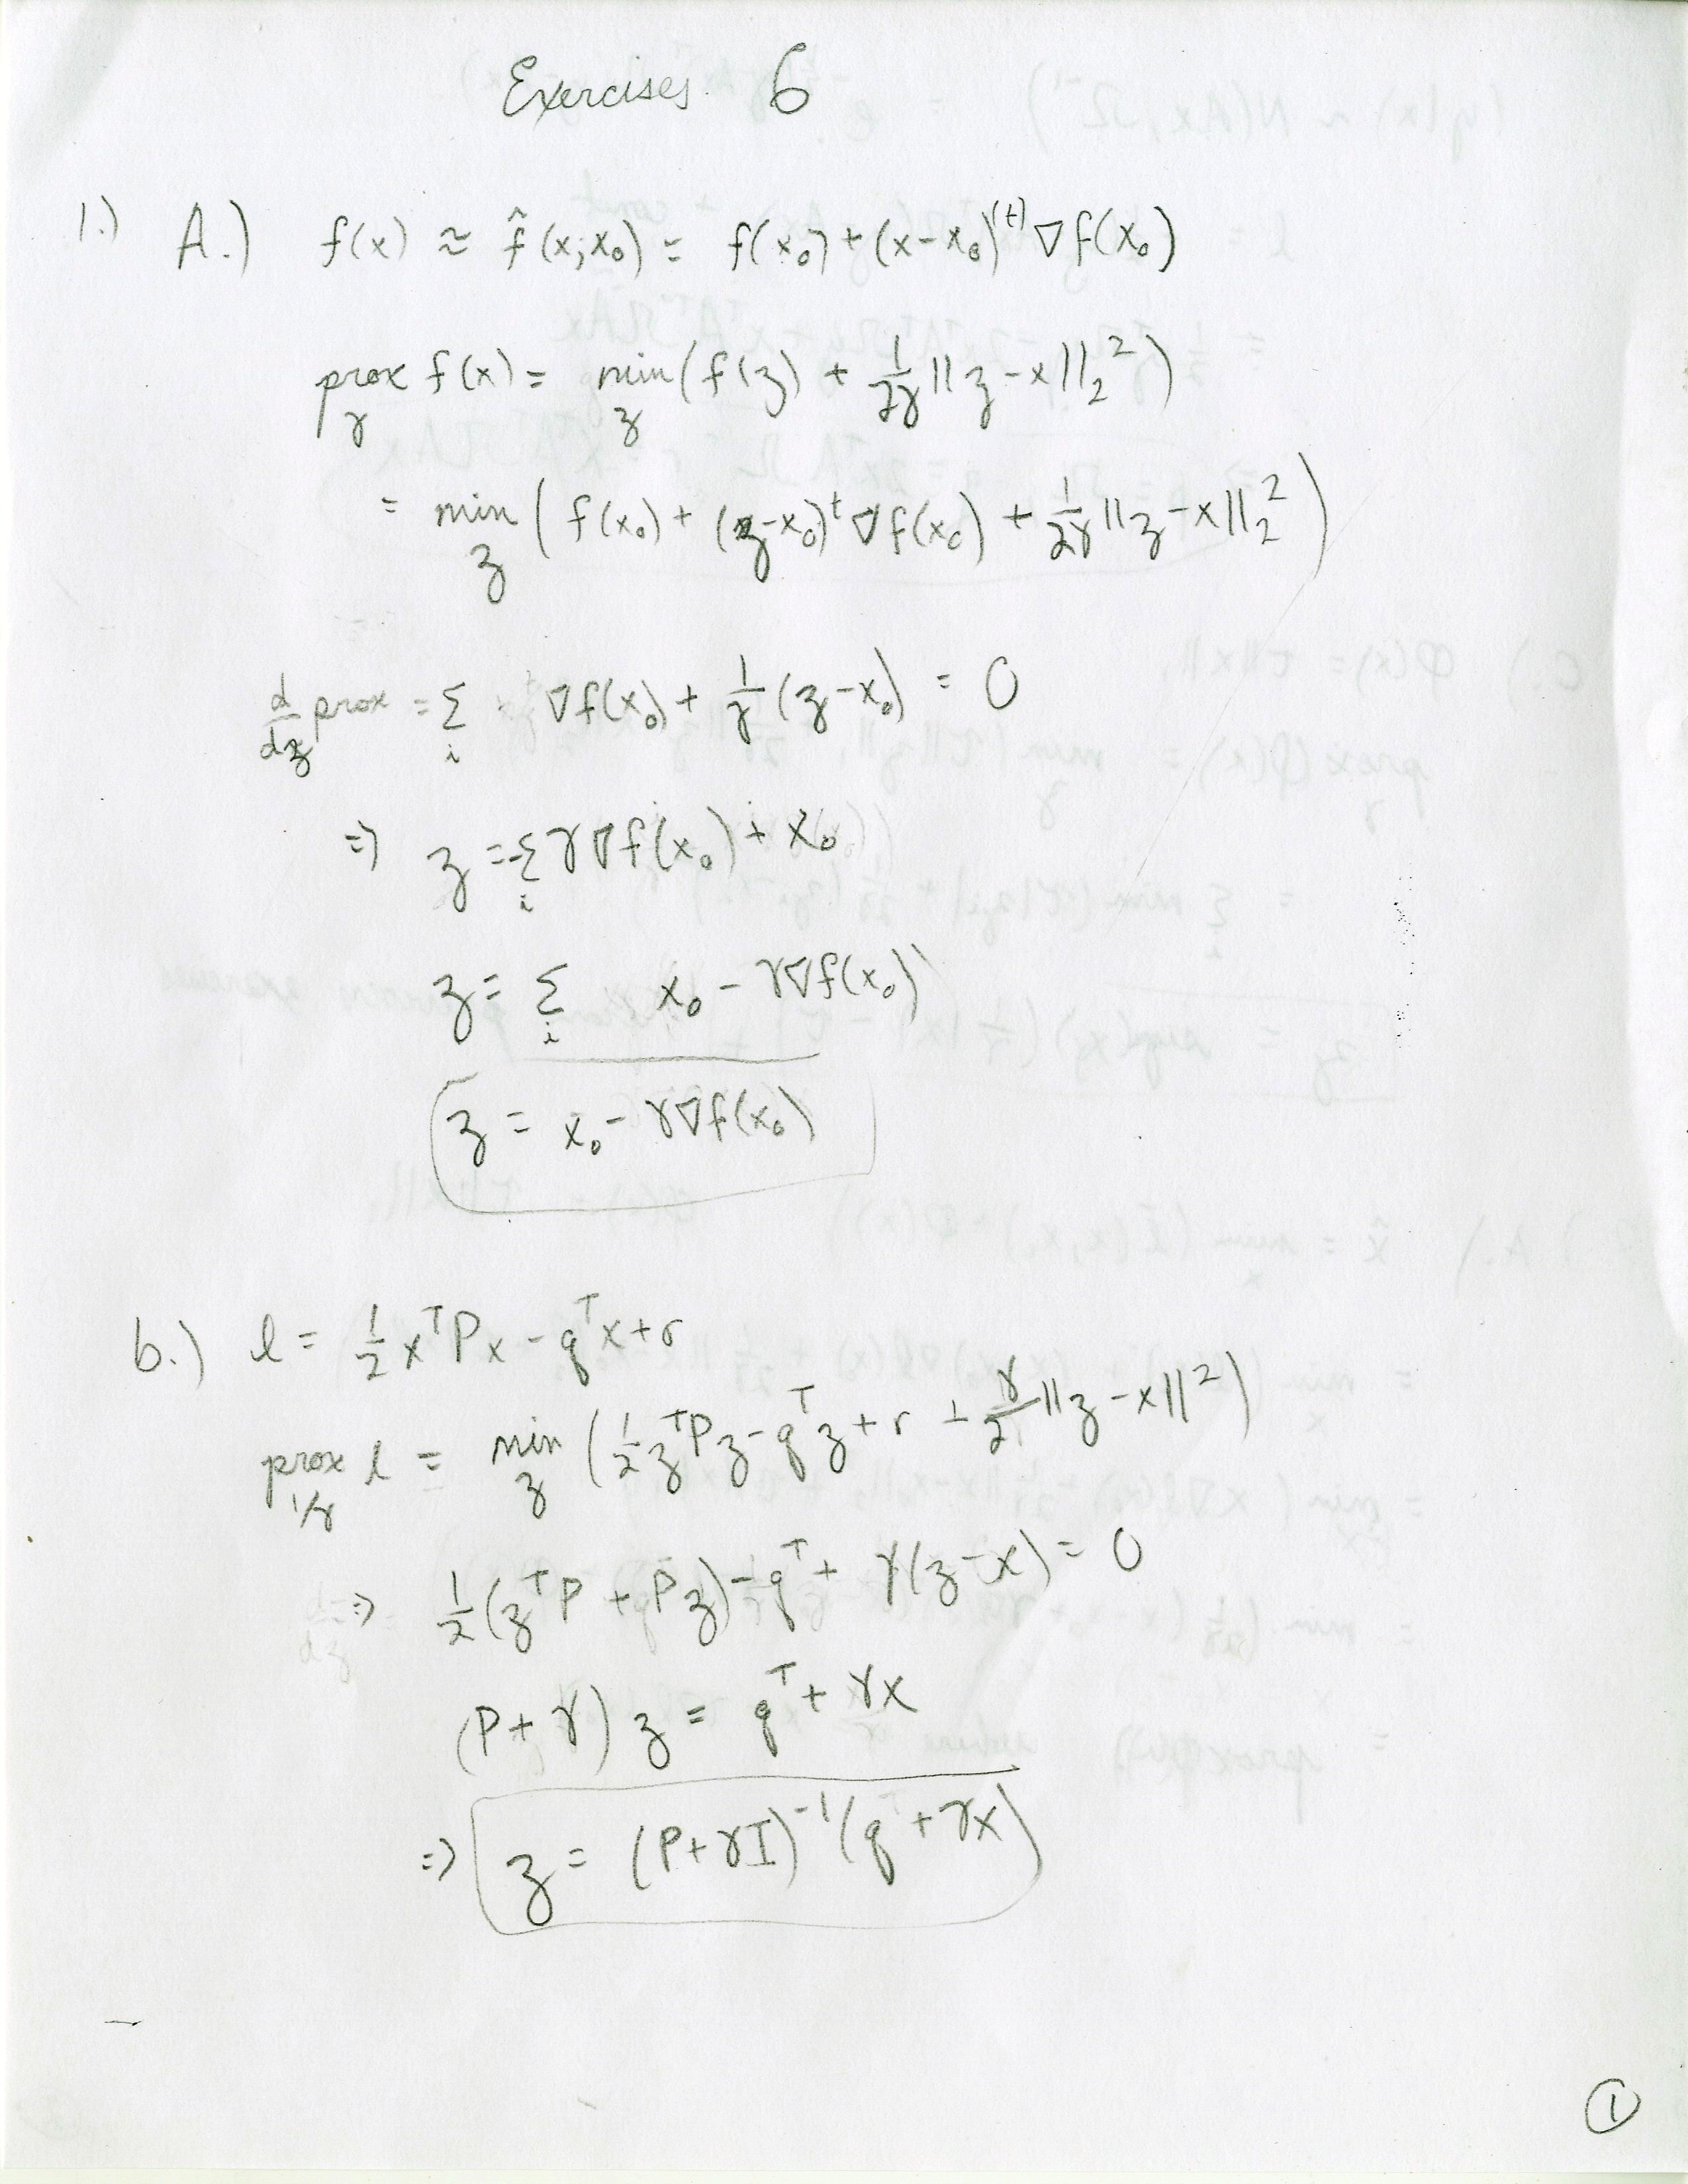 Exercises 6
1.) A.) f(x) ≈ f̂(x; x₀) = f(x₀) + (x-x₀)⁽ᵗ⁾ ∇f(x₀)
prox_γ f(x) = min_z (f(z) + 1/2γ ||z-x||₂²)
= min_z (f(x₀) + (z-x₀)ᵗ ∇f(x₀) + 1/2γ ||z-x||₂²)
d/dz prox = Σ_i ∇f(x₀) + 1/γ (z-x₀) = 0
⇒ z = -Σ_i γ∇f(x₀) + x₀
z = Σ_i x₀ - γ∇f(x₀)
z = x₀ - γ∇f(x₀)
b.) l = 1/2 xᵀPx - qᵀx + r
prox_1/γ l = min_z (1/2 zᵀPz - qᵀz + r + γ/2 ||z-x||²)
⇒ 1/2 (zᵀP + Pz) - qᵀ + γ(z-x) = 0
(P+γ) z = qᵀ + γx
⇒ z = (P+γI)⁻¹(qᵀ + γx)
1